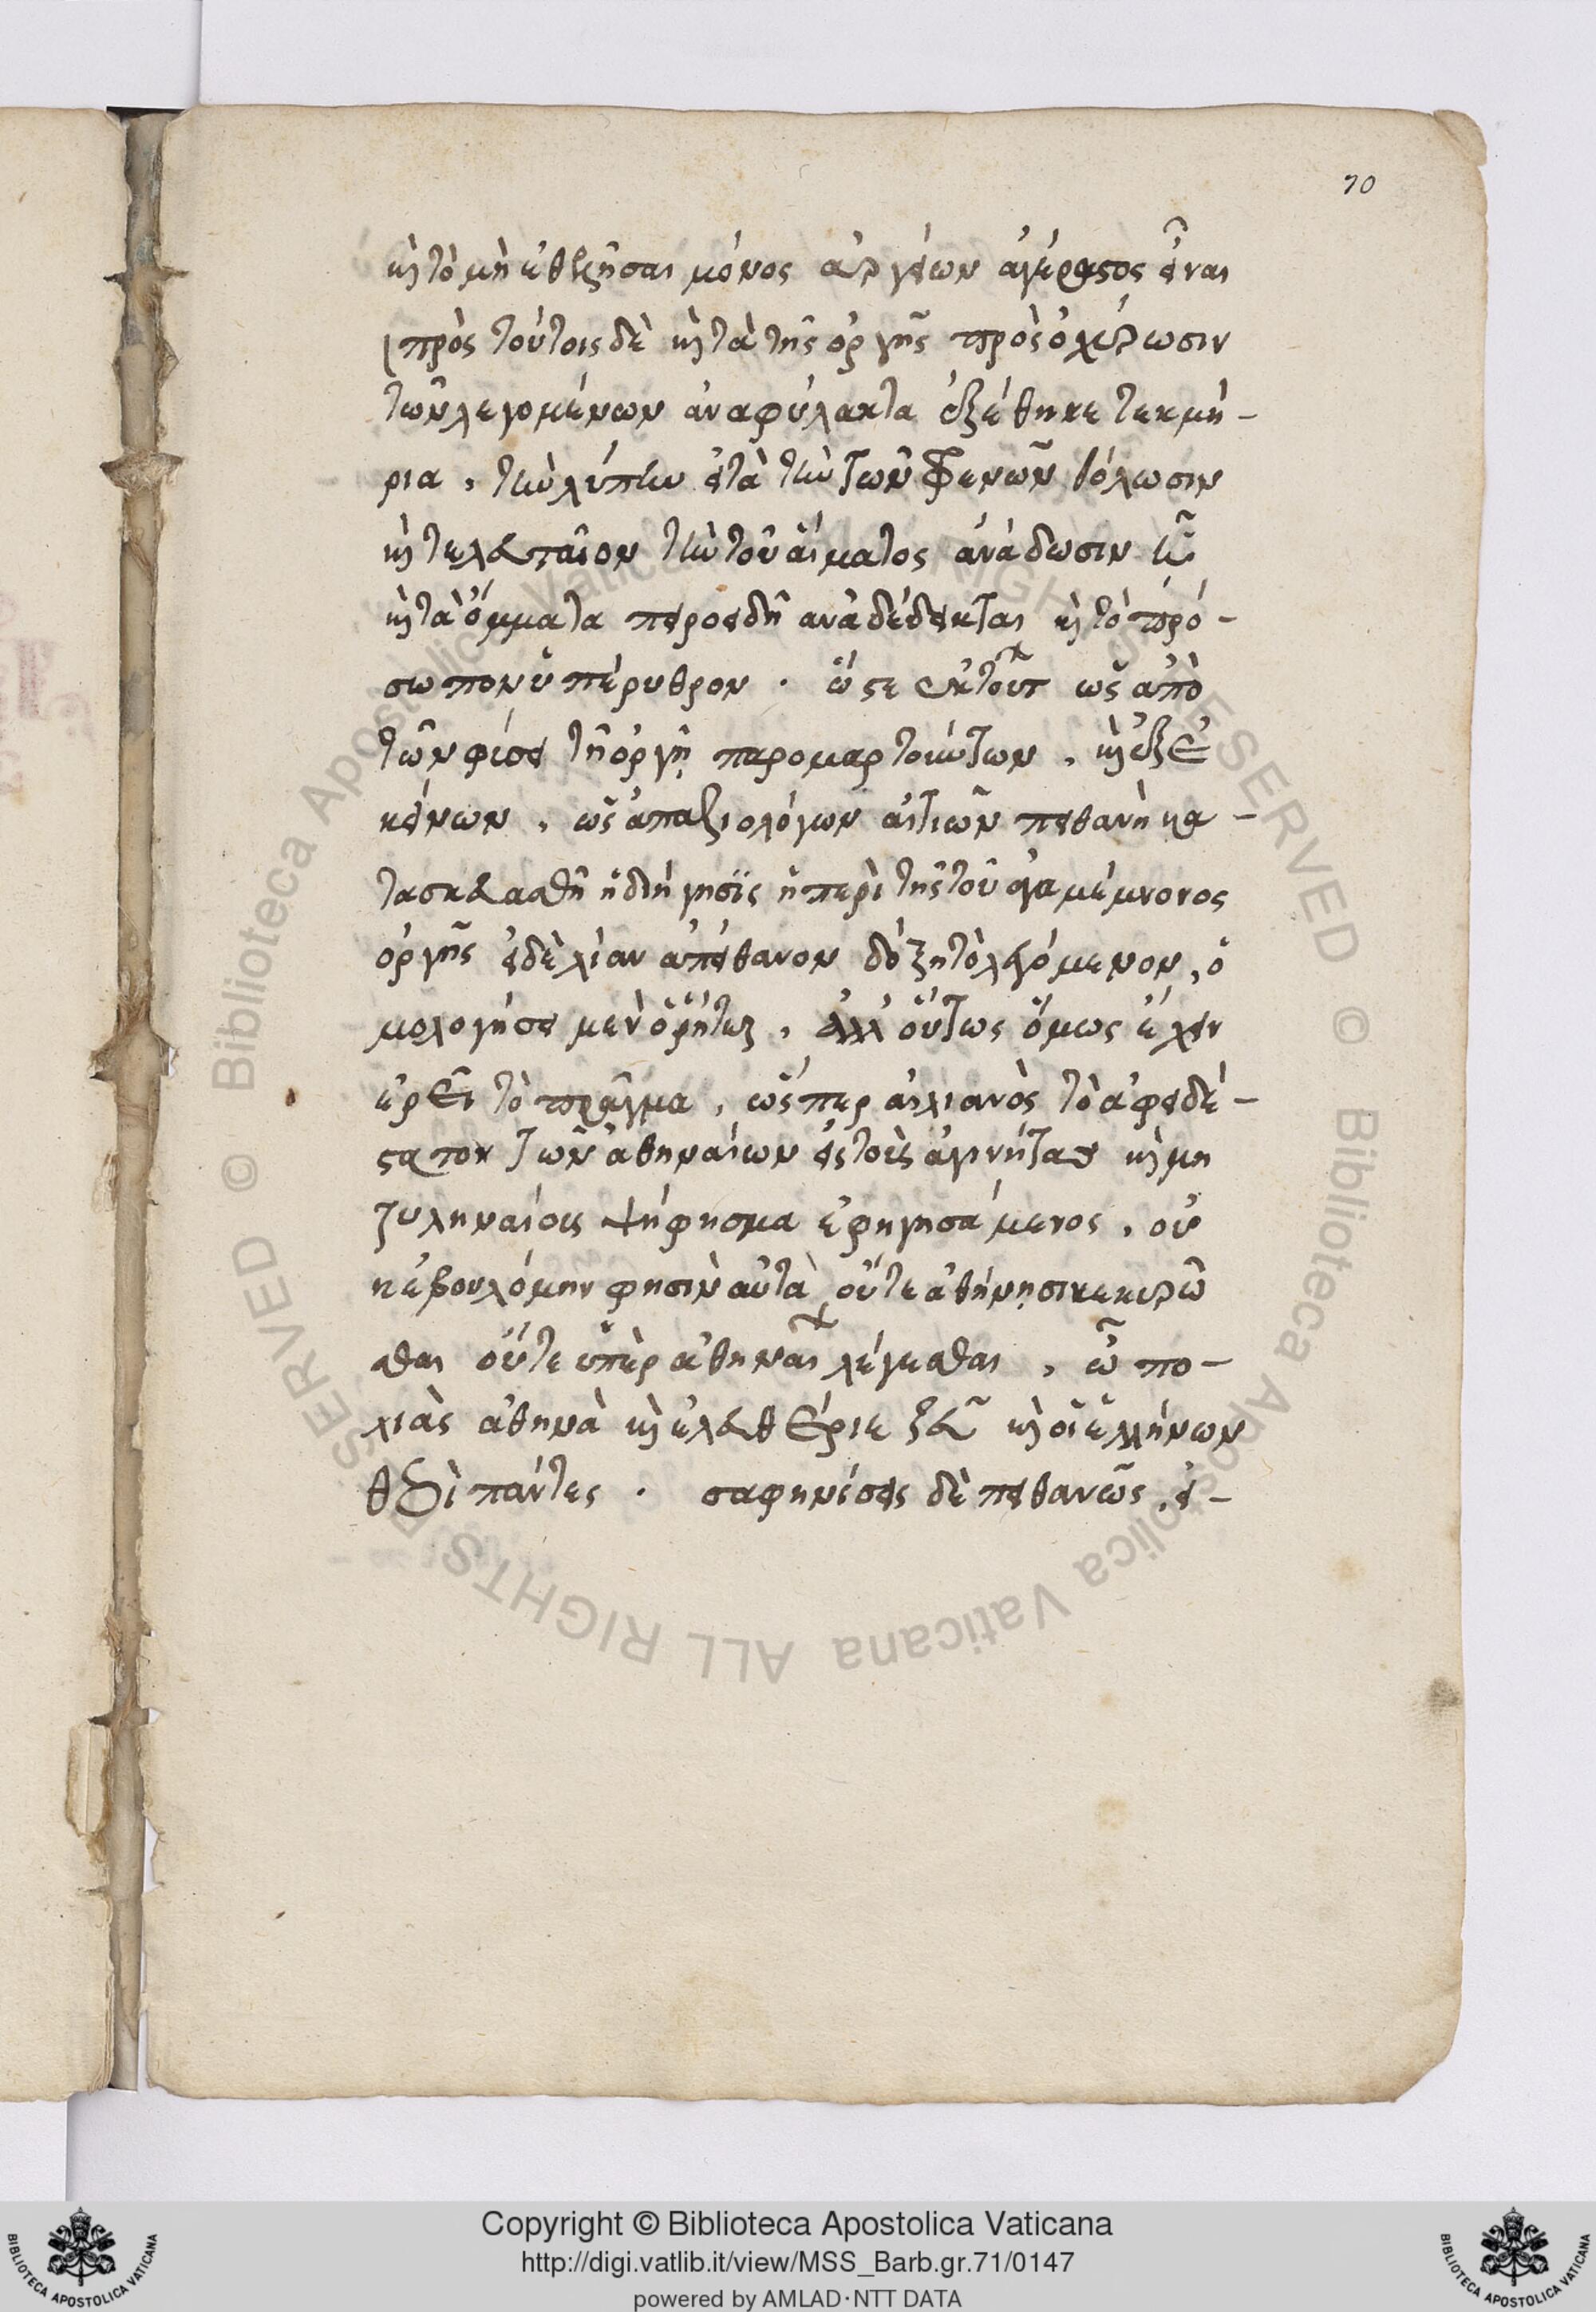 70
καὶ τὸ μὴ ἐθελῆσαι μόνος ἀργείων ἀγέραστος εἶναι
πρὸς τούτοις δὲ καὶ τὰ τῆς ὀργῆς πρὸς ὀχύρωσιν
τῶν λεγομένων ἀναφύλακτα ἐξέθηκε τεκμή-
ρια, τὴν λύπην εἶτα τὴν τῶν φρενῶν θόλωσιν
καὶ τελευταῖον τὴν τοῦ αἵματος ἀνάδωσιν
καὶ τὰ ὄμματα πυροειδῆ ἀναδέδεικται καὶ τὸ πρό-
σωπον ὑπέρυθρον. ὥστε ἐκ τούτ ὡς ἀπὸ
τῶν φύσει τῇ ὀργῇ παρομαρτούντων, καὶ ἐξ ἐ
κείνων, ὡς ἀπ ἀξιολόγων αἰτιῶν πειθανὴ κα-
τασκευασθῇ ἡ διήγησϊς ἡ περὶ τῆς τοῦ ἀγαμέμνονος
ὀργῆς εἰ δὲ λίαν ἀπείθανον δόξῃ τὸ λεγόμενον, ὁ
μολογήσει μὲν ὁ ῥήτωρ, ἀλλ οὕτως ὅμως ἔχειν
ἐρεῖ τὸ πρᾶγμα, ὥσπερ αἰλιανὸς τὸ ἀφειδέ-
στατον τῶν ἀθηναίων εἰς τοὺς αἰγινήτας καὶ μη
τυληναίους ψήφησμα ἐφηγησάμενος, οὐ
κ ἐβουλόμην φησὶν αὐτὰ οὔτε ἀθήνησι κεκυρῶ
σθαι οὔτε ὑπὲρ ἀθηναί λέγεσθαι, ὦ πο-
λιὰς ἀθηνὰ καὶ ἐλευθέριε ζεῦ καὶ οἱ ἑλλήνων
θεοὶ πάντες. σαφηνίσεις δὲ πειθανῶς, εἰ-
Copyright © Biblioteca Apostolica Vaticana
http://digi.vatlib.it/view/MSS_Barb.gr.71/0147
powered by AMLAD·NTT DATA
BIBLIOTECA APOSTOLICA VATICANA
BIBLIOTECA APOSTOLICA VATICANA
© Biblioteca Apostolica Vaticana ALL RIGHTS RESERVED © Biblioteca Apostolica Vaticana ALL RIGHTS RESERVED